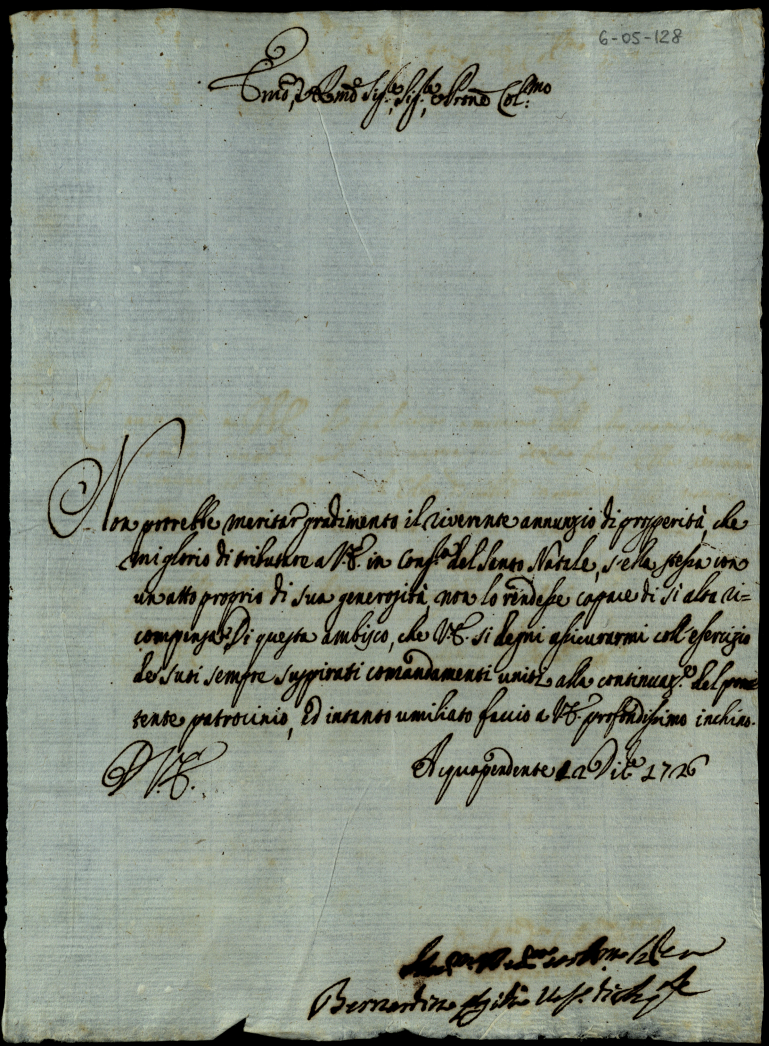 6-05-128
Emo, e Rmo Sig.re, Sig.re e Prone Col.mo
Non potrebbe meritar gradimento il riverente annunzio di prosperità, che
mi glorio di tributare a V.E. in Cong.a del Santo Natale, s'ella stessa con
un atto proprio di sua generosità non lo rendesse capace di sì alta ri=
compensa. Di questa ambisco, che V.E. si degni assicurarmi coll'esercizio
de suoi sempre suspirati comandamenti uniti alla continuaz.e del
tente patrocinio, Ed intanto umiliato faccio a V.E. profondissimo inchino.
D V.E. Acquapendente 12 Dic.e 1726
Bernardino